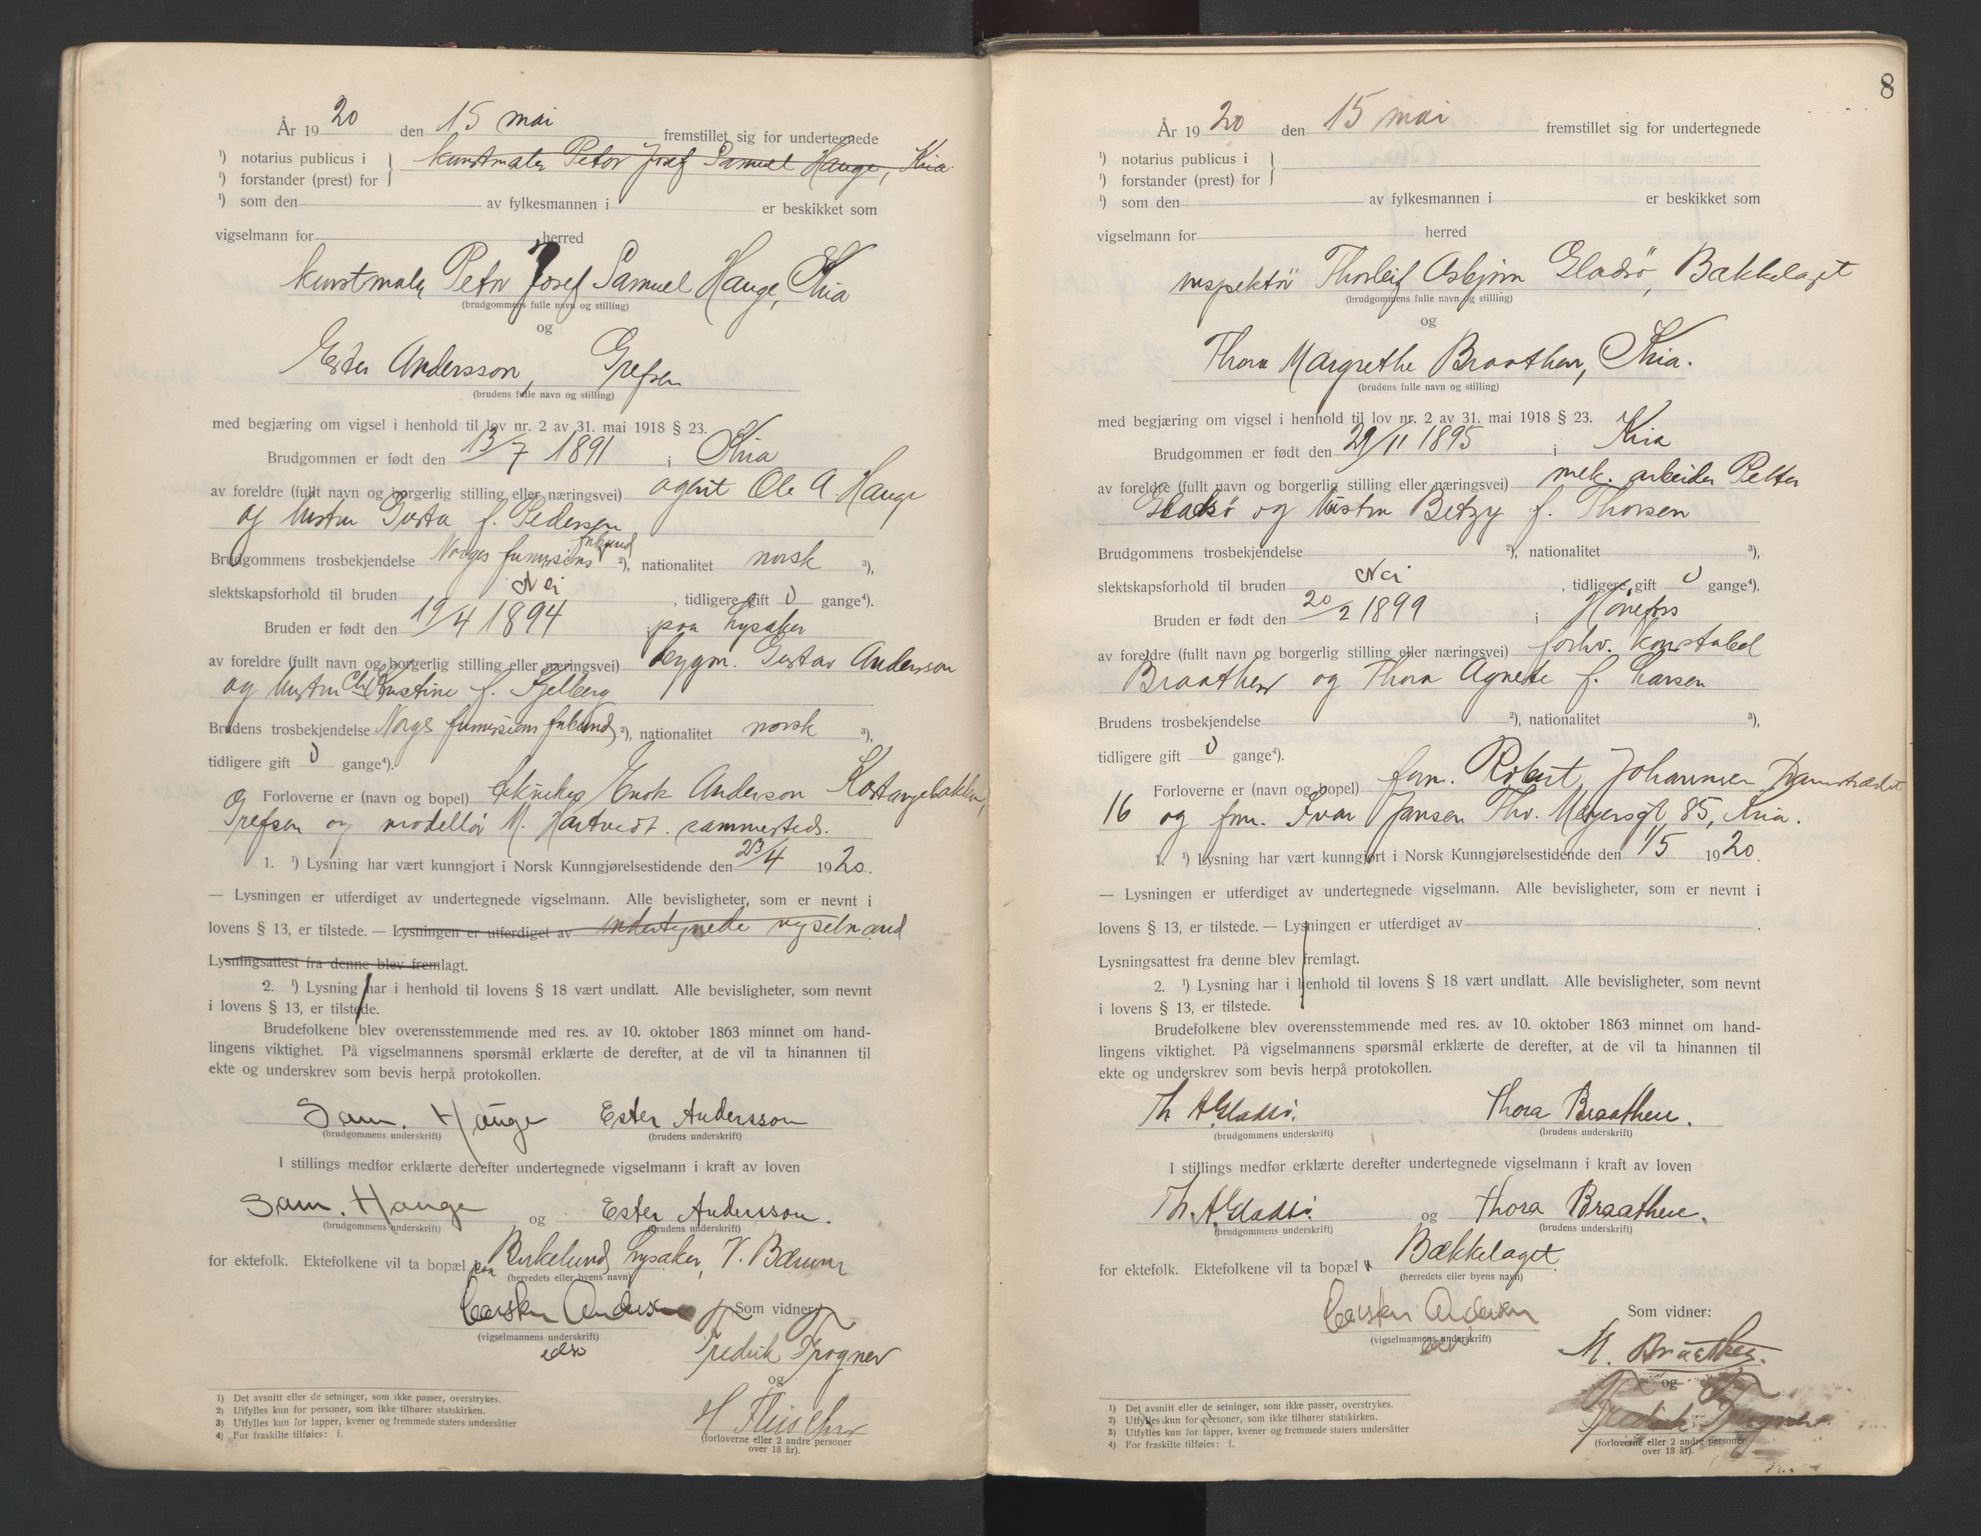 År 1920 den 15 mai fremstillet sig for undertegnede
¹) notarius publicus i
kunstmaler Peter Josef Samuel Hauge, Kria
¹) forstander (prest) for
¹) som den av fylkesmannen i er beskikket som
vigselmann for herred
kunstmaler Peter Josef Samuel Hauge, Kria
(brudgommens fulle navn og stilling)
og
Ester Andersson, Grefsen
(brudens fulle navn og stilling)
med begjæring om vigsel i henhold til lov nr. 2 av 31. mai 1918 § 23.
Brudgommen er født den 13/7 1891 i Kria
av foreldre (fullt navn og borgerlig stilling eller næringsvei) agent Ole A. Hauge
og hustru Gusta f. Pedersen
Brudgommens trosbekjendelse Norges ²), nationalitet norsk ³),
slektskapsforhold til bruden Nei, tidligere gift 0 gange⁴).
Bruden er født den 19/4 1894 paa Lysaker
av foreldre (fullt navn og borgerlig stilling eller næringsvei) bygm. Gustav Anderson
og hustru Christine f. Fjelberg
Brudens trosbekjendelse Norges ²), nationalitet norsk ³),
tidligere gift 0 gange⁴).
Forloverne er (navn og bopel) tekniker Enok Anderson
Grefsen og modellør M. Hartvedt sammesteds.
1. ¹) Lysning har vært kunngjort i Norsk Kunngjørelsestidende den 23/4 1920.
— Lysningen er utferdiget av undertegnede vigselmann. Alle bevisligheter, som er nevnt i
lovens § 13, er tilstede. — Lysningen er utferdiget av undertegnede vigselmand
Lysningsattest fra denne blev fremlagt.
2. ¹) Lysning har i henhold til lovens § 18 vært undlatt. Alle bevisligheter, som nevnt
i lovens § 13, er tilstede.
Brudefolkene blev overensstemmende med res. av 10. oktober 1863 minnet om hand-
lingens viktighet. På vigselmannens spørsmål erklærte de derefter, at de vil ta hinannen til
ekte og underskrev som bevis herpå protokollen.
Sam. Hauge Ester Andersson
(brudgommens underskrift) (brudens underskrift)
I stillings medfør erklærte derefter undertegnede vigselmann i kraft av loven
Sam. Hauge og Ester Andersson.
(brudgommens underskrift) (brudens underskrift)
for ektefolk. Ektefolkene vil ta bopæl paa Birkelund, Lysaker, V. Bærum
(herredets eller byens navn)
Carsten Andersen Som vidner:
(vigselmannens underskrift)
Fredrik Trogner
og
(forloverne eller 2 andre personer
over 18 år).
1) Det avsnitt eller de setninger, som ikke passer, overstrykes.
2) Utfylles kun for personer, som ikke tilhører statskirken.
3) Utfylles kun for lapper, kvener og fremmede staters undersåtter
4) For fraskilte tilføies: f.
8
År 1920 den 15 mai fremstillet sig for undertegnede
¹) notarius publicus i
¹) forstander (prest) for
¹) som den av fylkesmannen i er beskikket som
vigselmann for herred
inspektør Thorleif Asbjørn Gladsø, Bækkelaget
(brudgommens fulle navn og stilling)
og
Thora Margrethe Braathen, Kria.
(brudens fulle navn og stilling)
med begjæring om vigsel i henhold til lov nr. 2 av 31. mai 1918 § 23.
Brudgommen er født den 29/11 1895 i Kria
av foreldre (fullt navn og borgerlig stilling eller næringsvei) mek. arbeider Petter
Gladsø og hustru Betzy f. Thorsen
Brudgommens trosbekjendelse ²), nationalitet ³),
slektskapsforhold til bruden Nei, tidligere gift 0 gange⁴).
Bruden er født den 20/2 1899 i Hønefos
av foreldre (fullt navn og borgerlig stilling eller næringsvei) forhv. konstabel
Braathen og Thora Agnete f. Larsen
Brudens trosbekjendelse ²), nationalitet ³),
tidligere gift 0 gange⁴).
Forloverne er (navn og bopel) form. Robert Johannsen
16 og frm. Ivar Jansen Thv. Meyersgt. 85, Kria.
1. ¹) Lysning har vært kunngjort i Norsk Kunngjørelsestidende den 1/5 1920.
— Lysningen er utferdiget av undertegnede vigselmann. Alle bevisligheter, som er nevnt i
lovens § 13, er tilstede. — Lysningen er utferdiget av
Lysningsattest fra denne blev fremlagt.
2. ¹) Lysning har i henhold til lovens § 18 vært undlatt. Alle bevisligheter, som nevnt
i lovens § 13, er tilstede.
Brudefolkene blev overensstemmende med res. av 10. oktober 1863 minnet om hand-
lingens viktighet. På vigselmannens spørsmål erklærte de derefter, at de vil ta hinannen til
ekte og underskrev som bevis herpå protokollen.
Th A Gladsø. Thora Braathen.
(brudgommens underskrift) (brudens underskrift)
I stillings medfør erklærte derefter undertegnede vigselmann i kraft av loven
Th. A. Gladsø. og Thora Braathen.
(brudgommens underskrift) (brudens underskrift)
for ektefolk. Ektefolkene vil ta bopæl i Bækkelaget.
(herredets eller byens navn)
Carsten Andersen Som vidner:
(vigselmannens underskrift)
M. Braathen.
og
Fredrik Trogner
(forloverne eller 2 andre personer
over 18 år).
1) Det avsnitt eller de setninger, som ikke passer, overstrykes.
2) Utfylles kun for personer, som ikke tilhører statskirken.
3) Utfylles kun for lapper, kvener og fremmede staters undersåtter
4) For fraskilte tilføies: f.